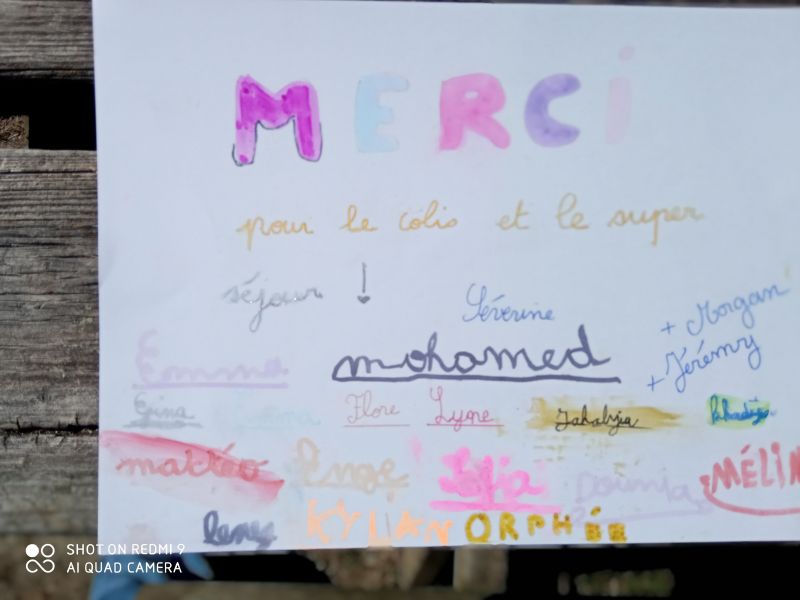 MERCi
pour le colis et le super
séjour !
Séverine
+ Morgan
+ Jérémy
Emma
mohamed
Gina
Flore
Lyne
mattéo
Sofia
Dounia
MÉLIN
KYLIAN
ORPHÉE
SHOT ON REDMI 9
AI QUAD CAMERA